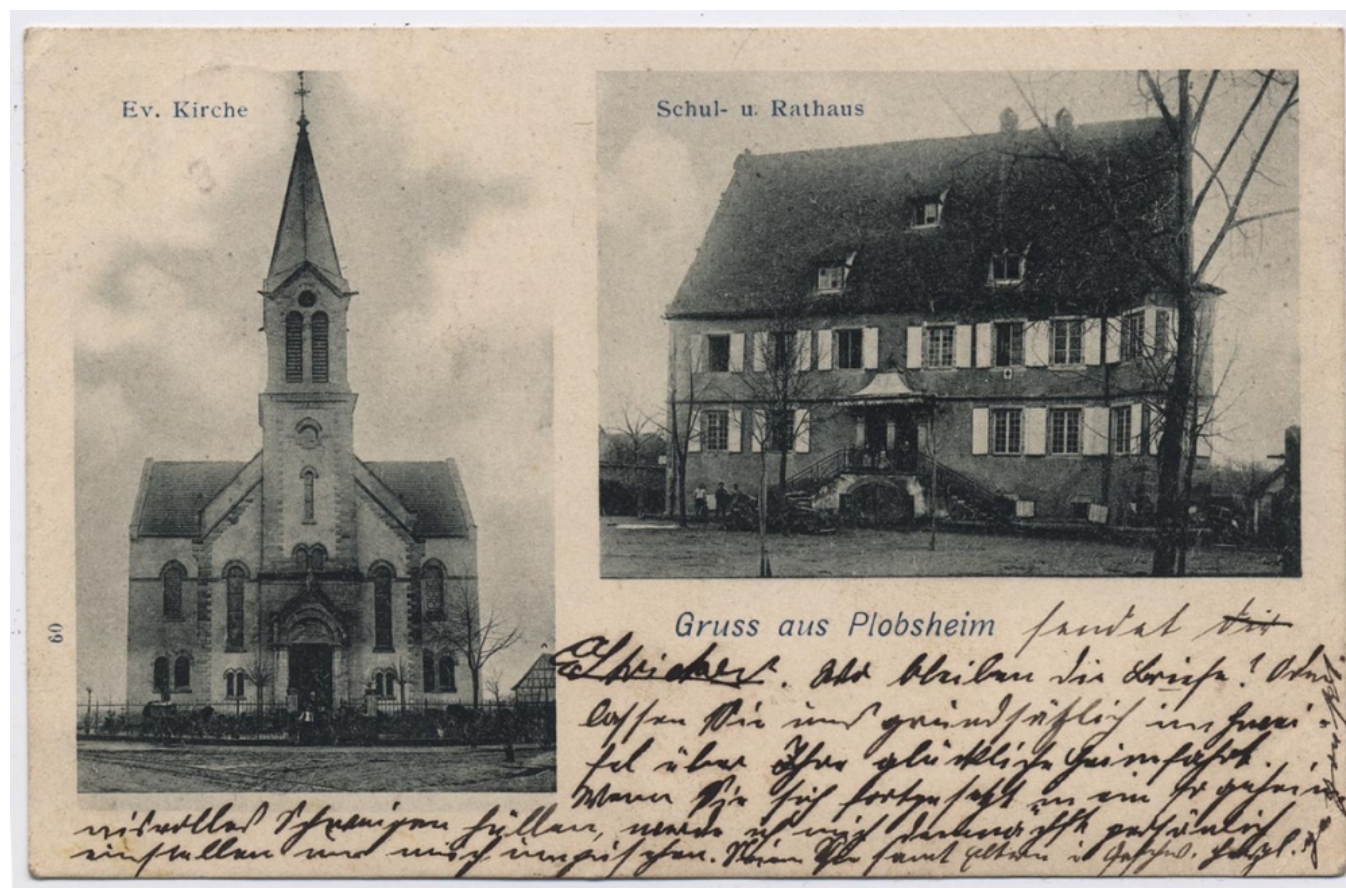 Ev. Kirche
Schul- u. Rathaus
60
Gruss aus Plobsheim sendet
Stricker. Wo bleiben die Briefe? Oder
lassen Sie uns grundsätzlich im Zwei-
fel über Ihre glückliche Heimfahrt.
Wenn Sie sich fortgesetzt in ein so geheim
nisvolles Schweigen hüllen, werde ich mich demnächst persönlich
einstellen um mich umzusehen. Seien Sie samt Eltern u. Geschw. herzl.